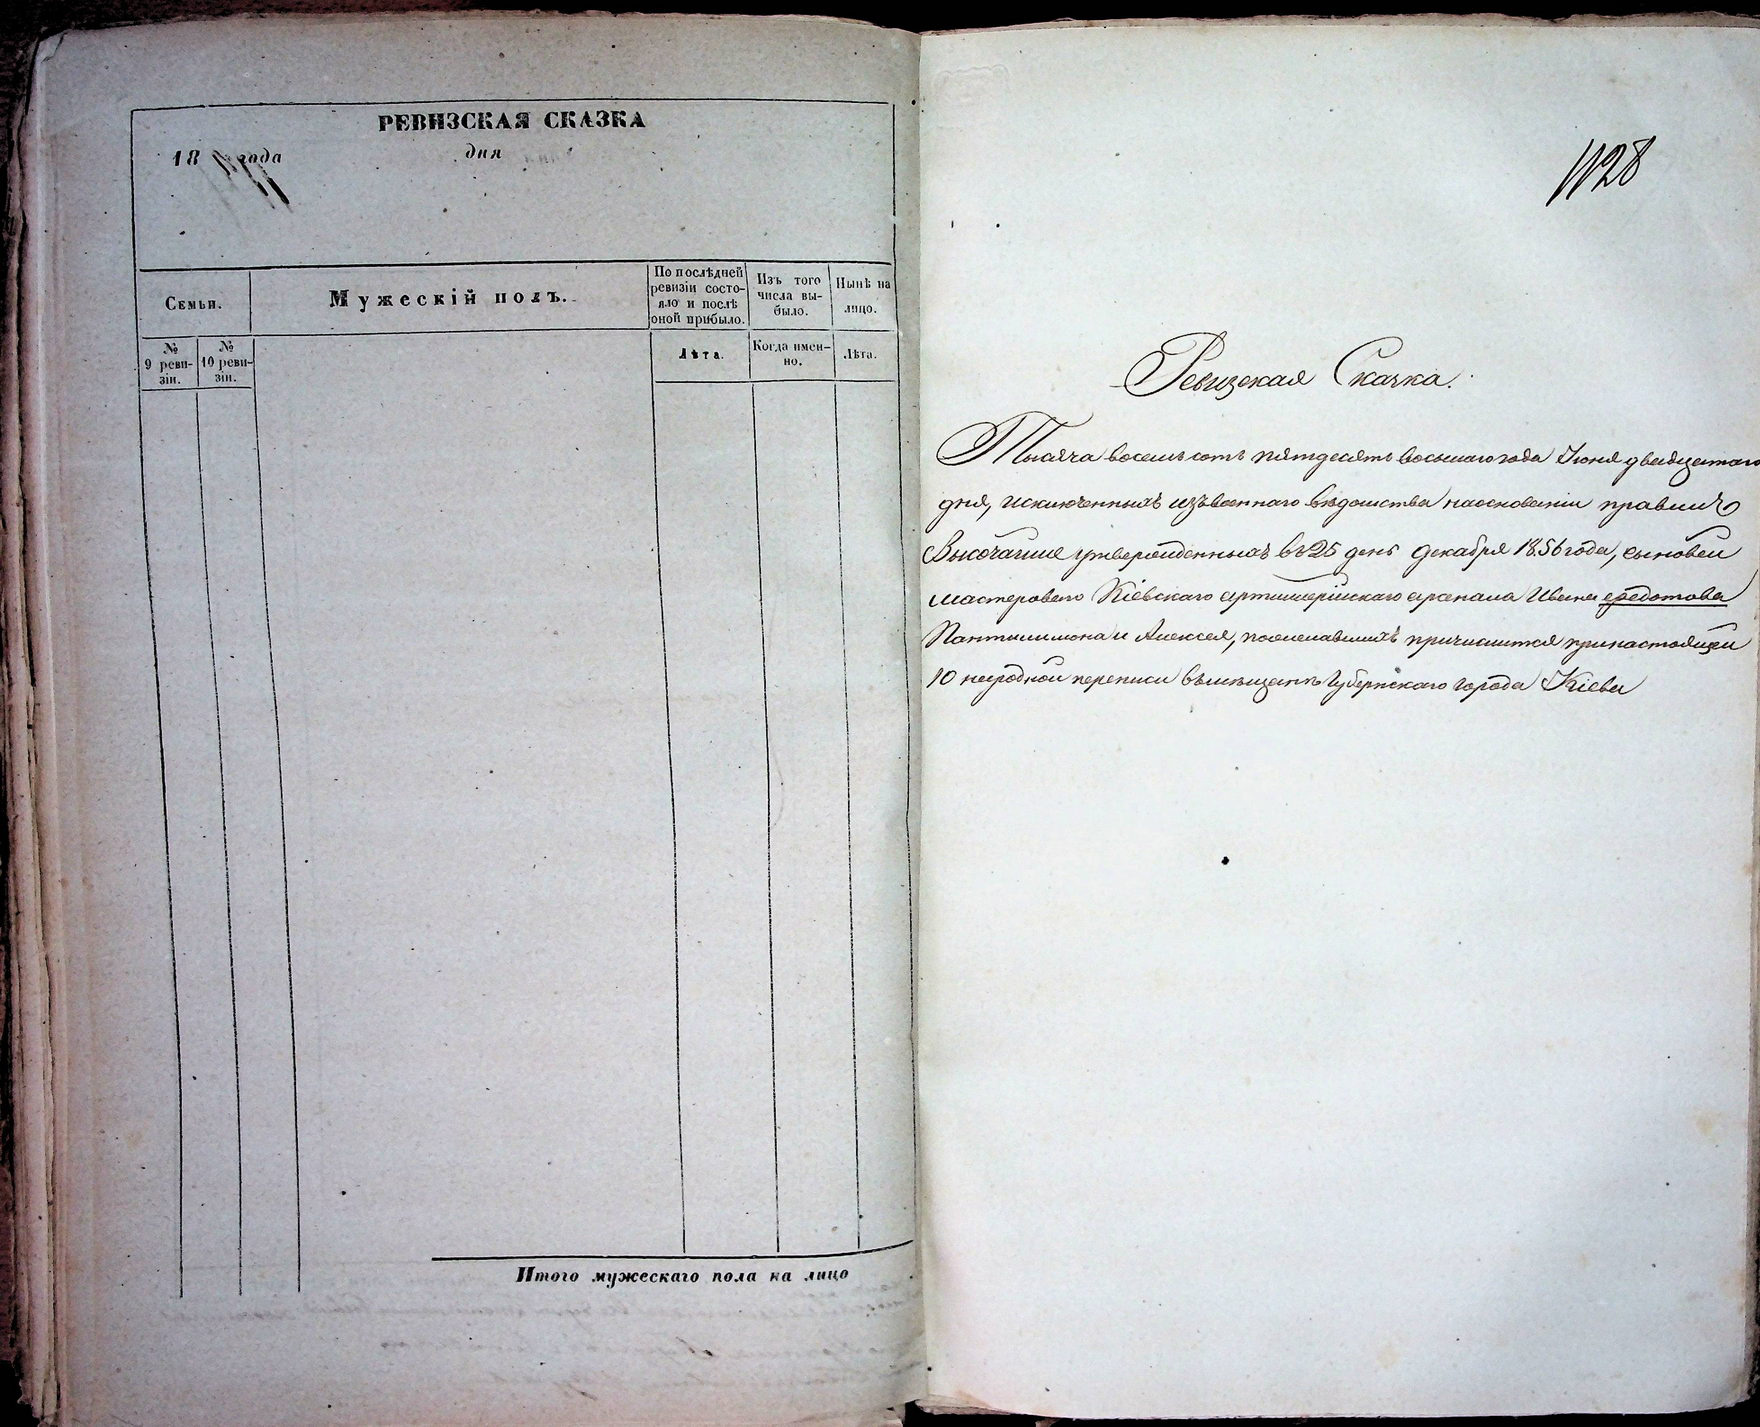 РЕВИЗСКАЯ СКАЗКА
18 года дня
Семьи.
Мужескій полъ.
По послѣдней
ревизіи состо-
яло и послѣ
оной прибыло.
Изъ того
числа вы-
было.
Нынѣ на
лицо.
№
9 реви-
зіи.
№
10 реви-
зіи.
Лѣта.
Когда имен-
но.
Лѣта.
Итого мужескаго пола на лицо
1128
Ревизская Сказка.
Тысяча восемьсотъ пятдесятъ восьмаго года Іюня двадцатаго
дня, исключенныхъ изъ военнаго вѣдомства на основаніи правилъ
Высочайше утвержденныхъ въ 25 день декабря 1856 года, сыновей
мастероваго Кіевскаго артиллерійскаго арсенала Ивана Федотова
Пантилимона и Алексея, пожелавшихъ причислится при настоящей
10 народной переписи въ мѣщане Губернскаго города Кіева